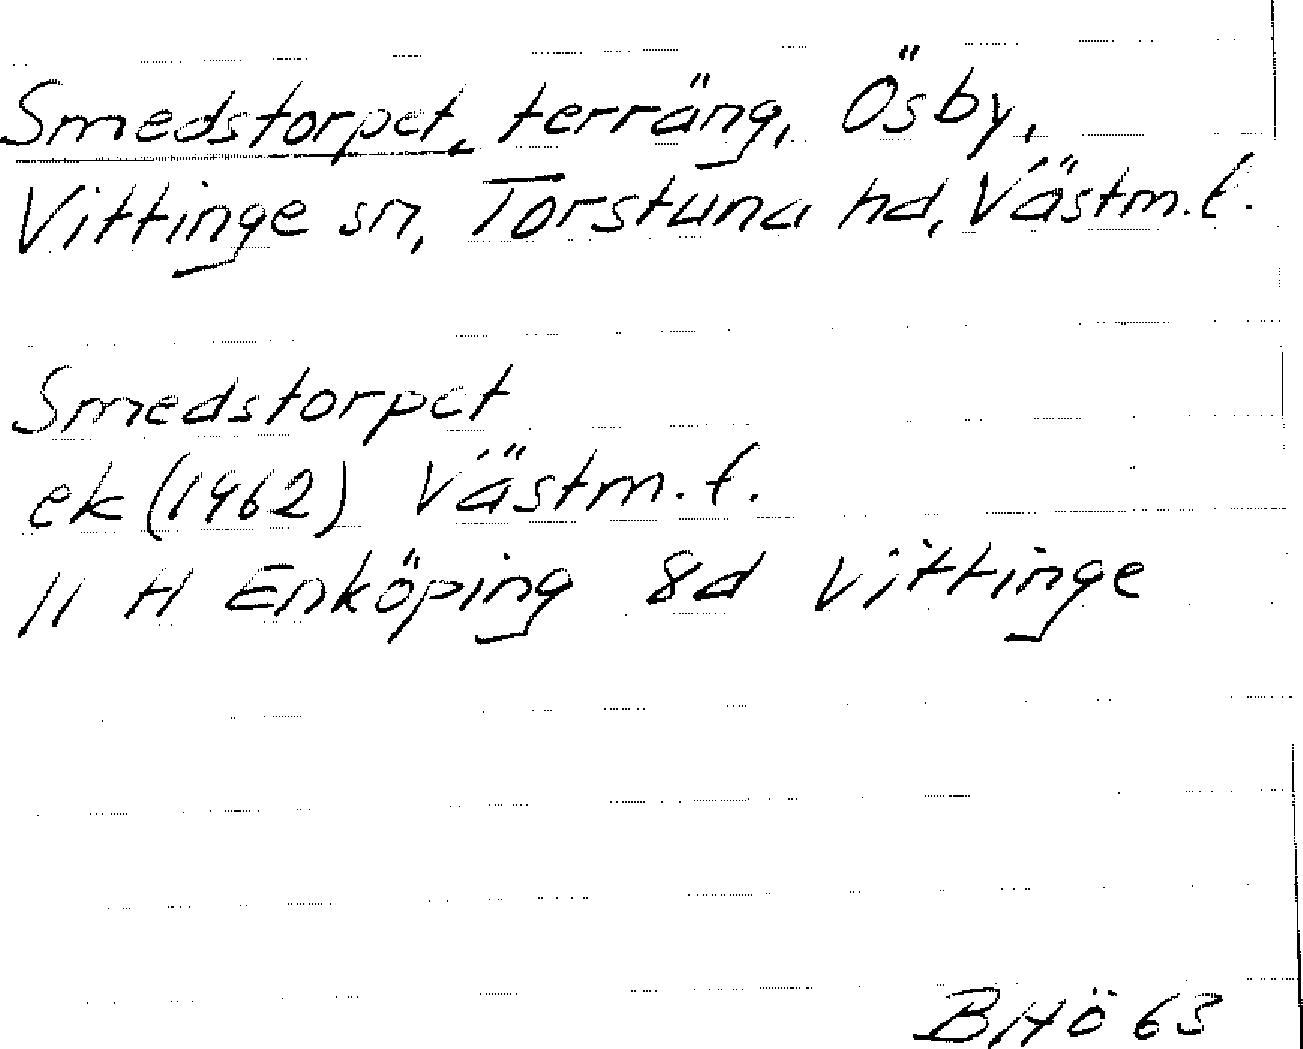 Smedstorpet, terräng, Ösby,
Vittinge sn, Torstuna hd, Västm. l.
Smedstorpet
ek (1962) Västm. l.
11 H Enköping 8d Vittinge
BHÖ 63